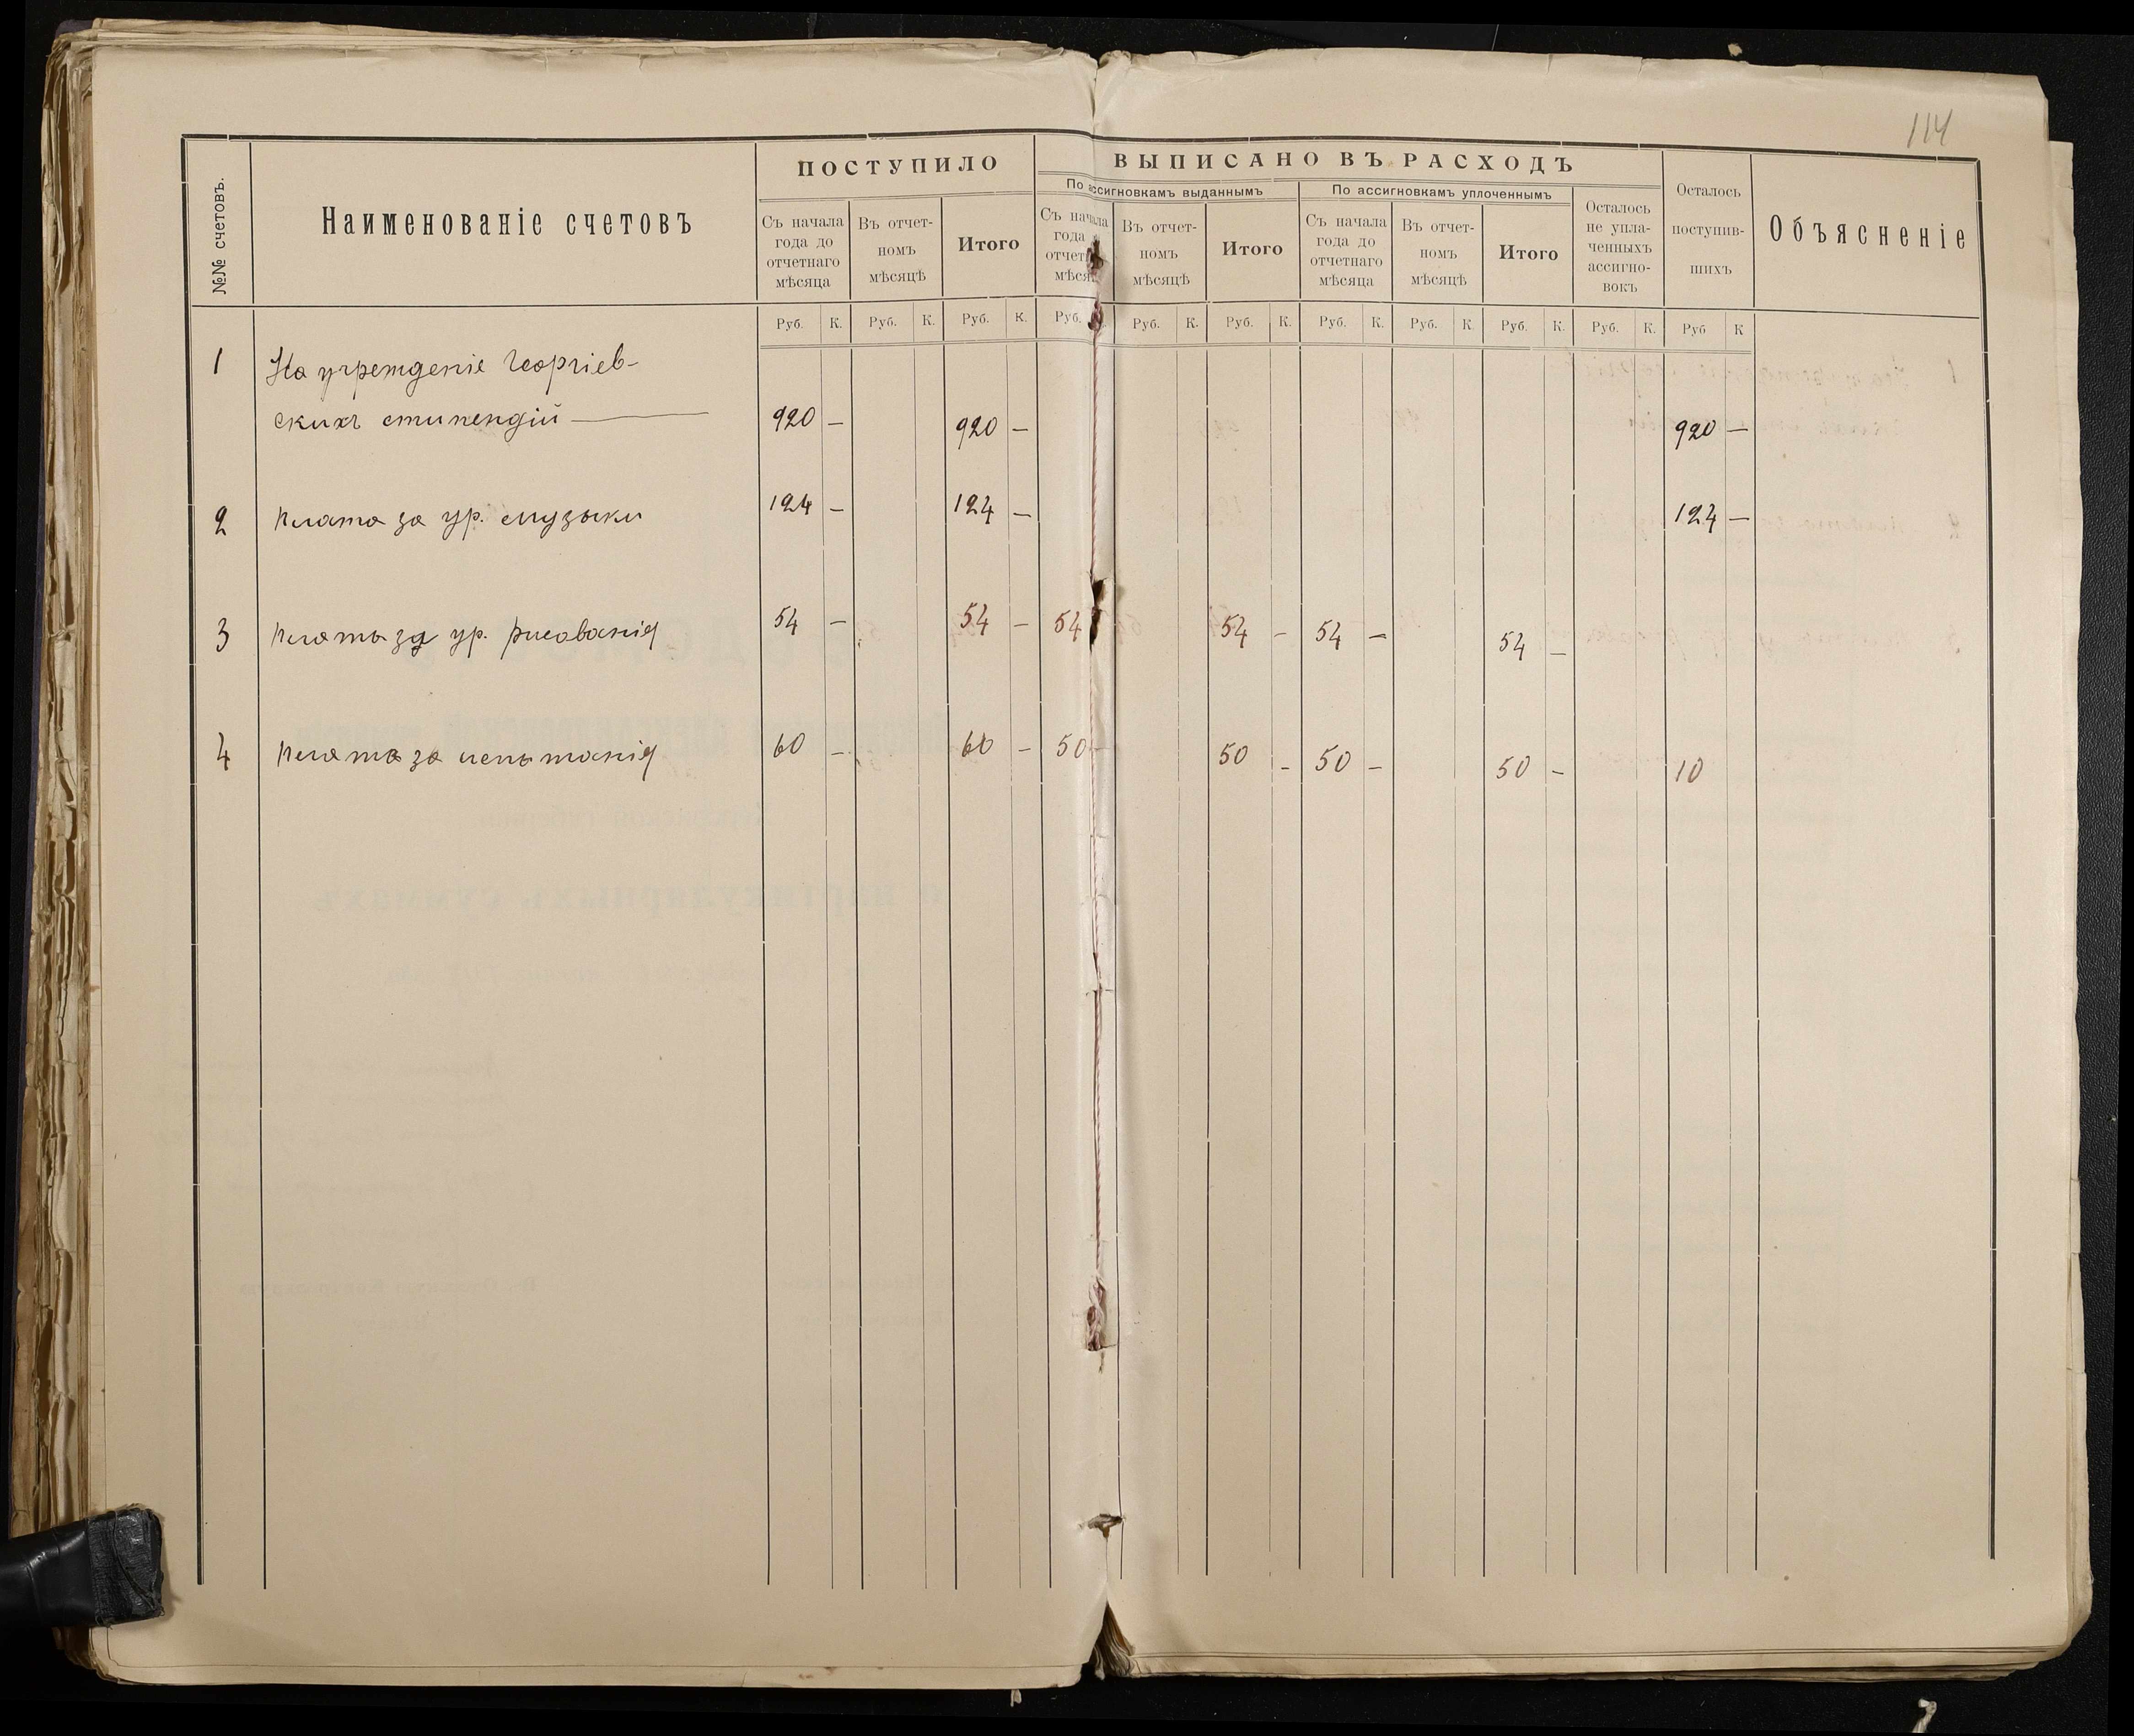 114
№№ счетовъ.
Наименованіе счетовъ
ПОСТУПИЛО
ВЫПИСАНО ВЪ РАСХОДЪ
По ассигновкамъ выданнымъ
По ассигновкамъ уплоченнымъ
Съ начала
года до
отчетнаго
мѣсяца
Въ отчет-
номъ
мѣсяцѣ
Итого
Съ начала
года
отчет
мѣся
Въ отчет-
номъ
мѣсяцѣ
Итого
Съ начала
года до
отчетнаго
мѣсяца
Въ отчет-
номъ
мѣсяцѣ
Итого
Осталось
не упла-
ченныхъ
ассигно-
вокъ
Осталось
поступив-
шихъ
Объясненіе
Руб. К. Руб. К. Руб. К. Руб. Руб. К. Руб. К. Руб. К. Руб. К. Руб. К. Руб. К. Руб К
1 На учрежденіе Георгіев-
скихъ стипендій — 920 — 920 — 920 —
2 Плата за ур. музыки 124 — 124 — 124 —
3 Плата за ур. рисованія 54 — 54 — 54 54 — 54 — 54 —
4 Плата за испытанія 60 — 60 — 50 — 50 — 50 — 50 — 10